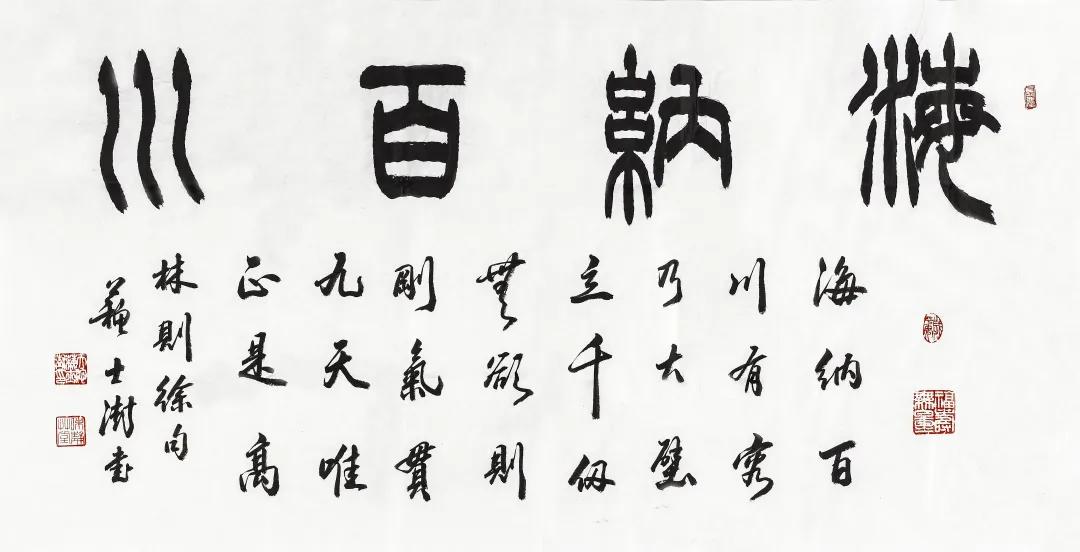 海納百川
福壽
無量
海納百
川有容
乃大壁
立千仞
無欲則
剛氣貫
九天唯
正是高
林則徐句
蘇士澍書